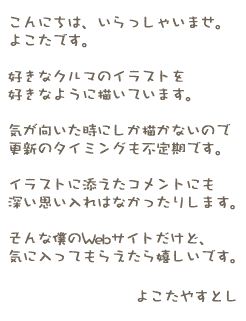 こんにちは、いらっしゃいませ。
よこたです。
好きなクルマのイラストを
好きなように描いています。
気が向いた時にしか描かないので
更新のタイミングも不定期です。
イラストに添えたコメントにも
深い思い入れはなかったりします。
そんな僕のWebサイトだけど、
気に入ってもらえたら嬉しいです。
よこたやすとし